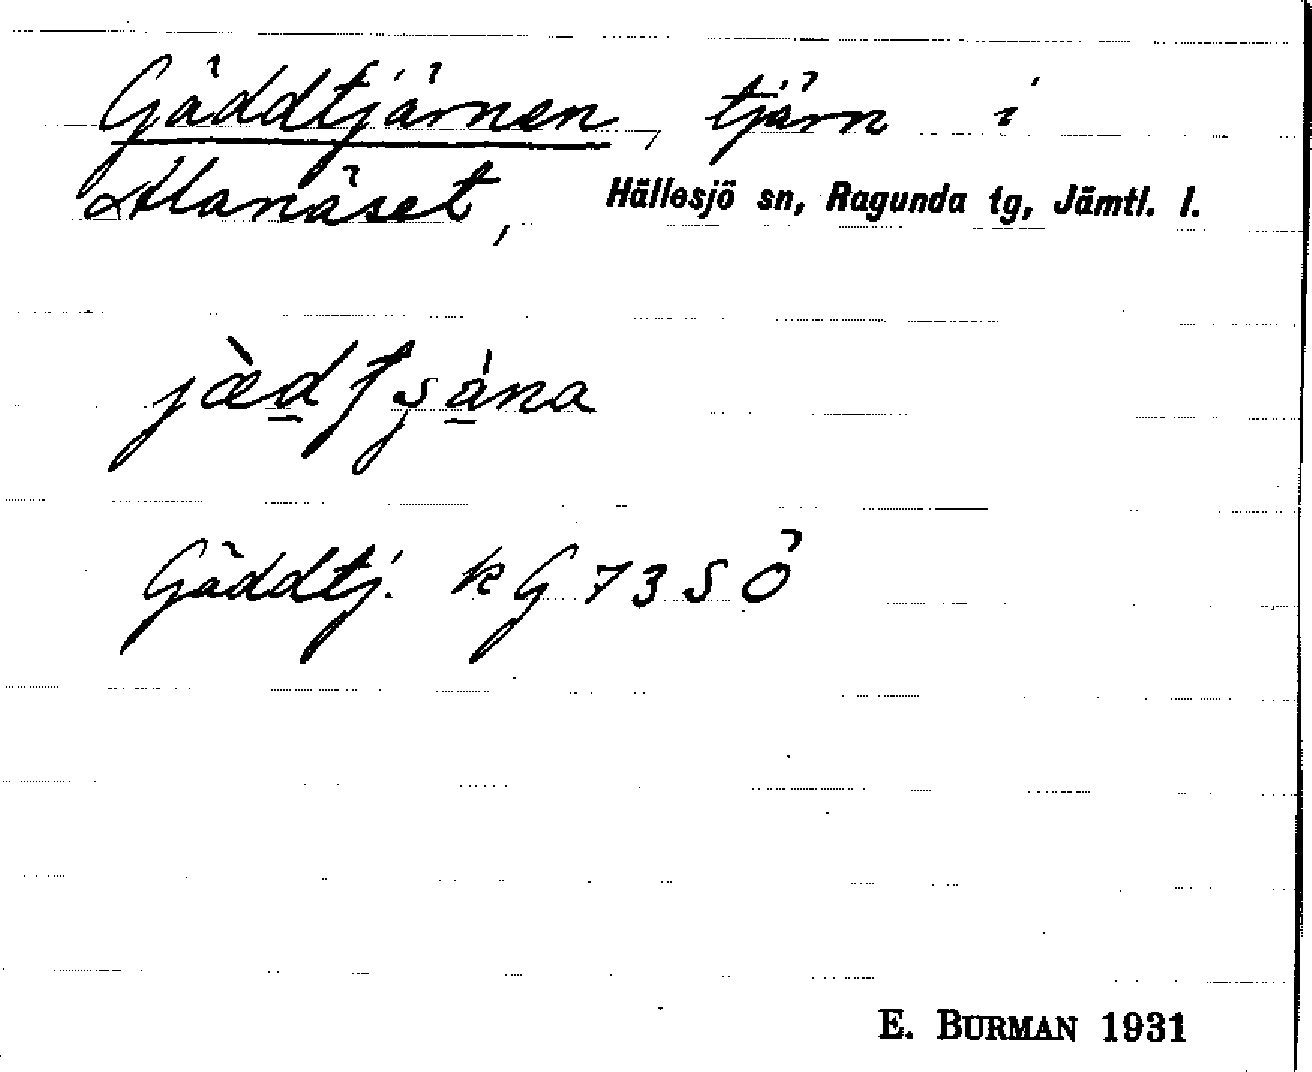 Gäddtjärnen, tjärn i
Alanäset, Hällesjö sn, Ragunda tg, Jämtl. l.
Gäddtj. kG 73 SÖ
E. BURMAN 1931